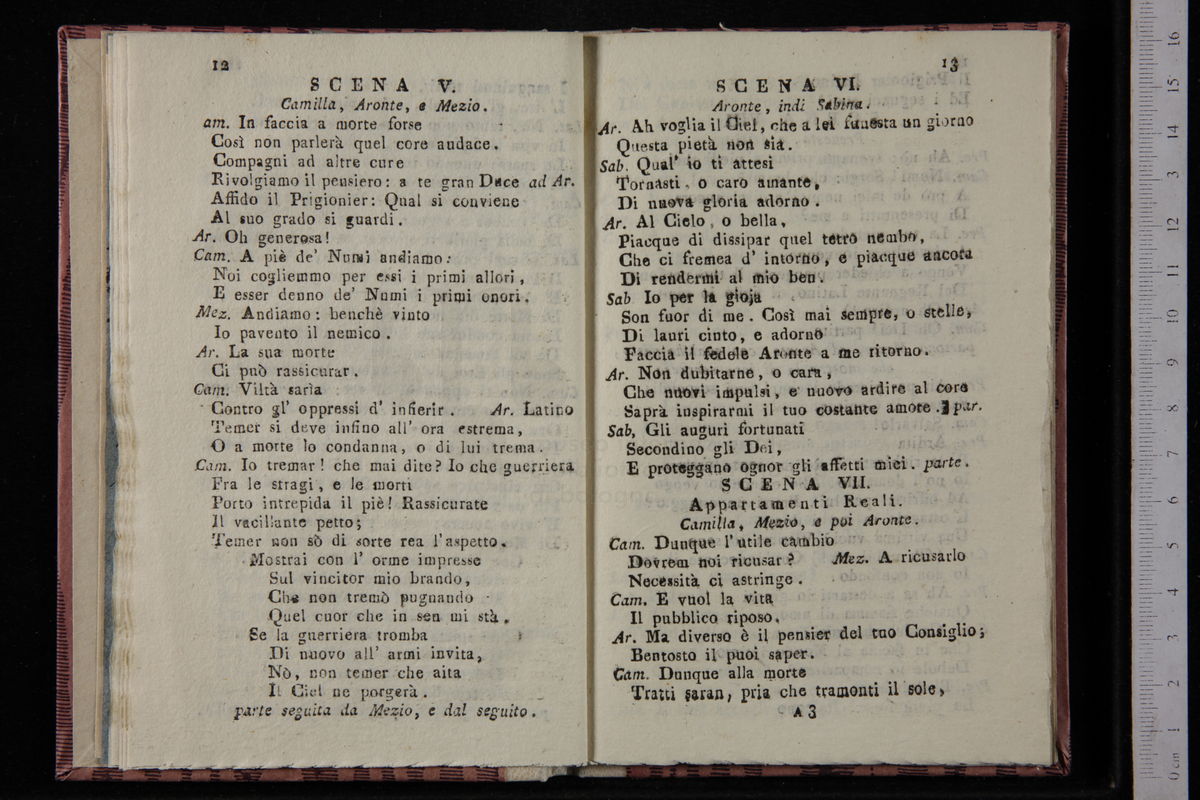 12
SCENA V.
Camilla, Aronte, e Mezio.
am. In faccia a morte forse
Così non parlerà quel core audace.
Compagni ad altre cure
Rivolgiamo il pensiero: a te gran Duce ad Ar.
Affido il Prigionier: Qual si conviene
Al suo grado si guardi.
Ar. Oh generosa!
Cam. A piè de' Numi andiamo:
Noi cogliemmo per essi i primi allori,
E esser denno de' Numi i primi onori.
Mez. Andiamo: benchè vinto
Io pavento il nemico.
Ar. La sua morte
Ci può rassicurar.
Cam. Viltà sarìa
Contro gl' oppressi d' infierir. Ar. Latino
Temer si deve infino all' ora estrema,
O a morte lo condanna, o di lui trema.
Cam. Io tremar! che mai dite? Io che guerriera
Fra le stragi, e le morti
Porto intrepida il piè! Rassicurate
Il vacillante petto;
Temer non sò di sorte rea l'aspetto.
Mostrai con l' orme impresse
Sul vincitor mio brando,
Che non tremò pugnando
Quel cuor che in sen mi stà.
Se la guerriera tromba
Di nuovo all' armi invita,
Nò, non temer che aita
Il Ciel ne porgerà.
parte seguita da Mezio, e dal seguito.
13
SCENA VI.
Aronte, indi Sabina.
Ar. Ah voglia il Ciel, che a lei funesta un giorno
Questa pietà non sia.
Sab. Qual' io ti attesi
Tornasti, o caro amante,
Di nuova gloria adorno.
Ar. Al Cielo, o bella,
Piacque di dissipar quel tetro nembo,
Che ci fremea d' intorno, e piacque ancora
Di rendermi al mio ben.
Sab Io per la gioja
Son fuor di me. Così mai sempre, o stelle,
Di lauri cinto, e adorno
Faccia il fedele Aronte a me ritorno.
Ar. Non dubitarne, o cara,
Che nuovi impulsi, e nuovo ardire al core
Saprà inspirarmi il tuo costante amore. par.
Sab, Gli auguri fortunati
Secondino gli Dei,
E proteggano ognor gli affetti miei. parte.
SCENA VII.
Appartamenti Reali.
Camilla, Mezio, e poi Aronte.
Cam. Dunque l'utile cambio
Dovrem noi ricusar? Mez. A ricusarlo
Necessità ci astringe.
Cam. E vuol la vita
Il pubblico riposo.
Ar. Ma diverso è il pensier del tuo Consiglio;
Bentosto il puoi saper.
Cam. Dunque alla morte
Tratti saran, pria che tramonti il sole,
A 3
0 cm 1 2 3 4 5 6 7 8 9 10 11 12 13 14 15 16